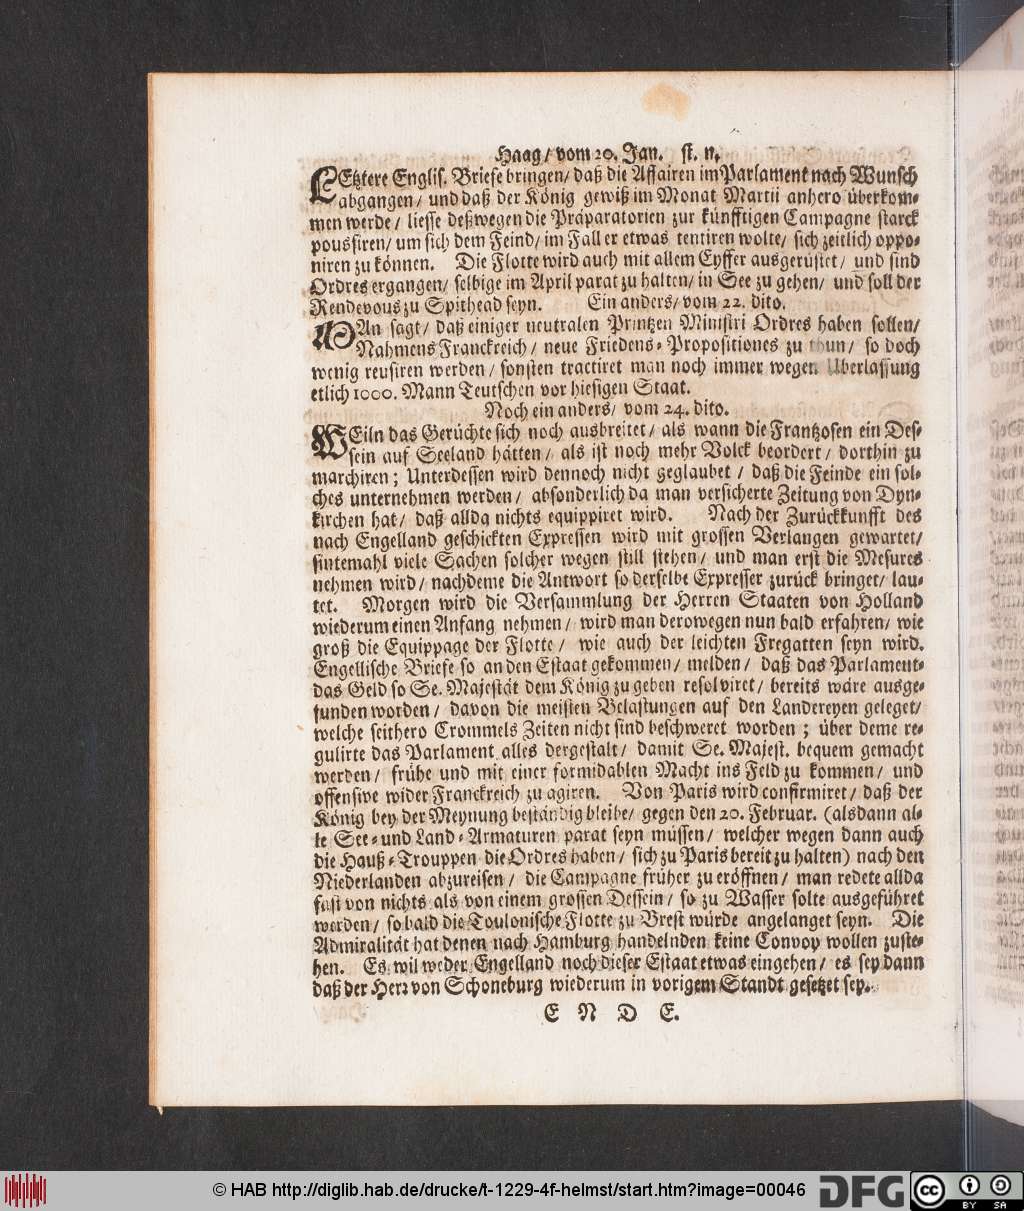 Haag/ vom 20. Jan. st. n.
LEtztere Englis. Briefe bringen/ daß die Affairen im Parlament nach Wunsch
abgangen/ und daß der König gewiß im Monat Martii anhero überkom-
men werde/ liesse deßwegen die Präparatorien zur künfftigen Campagne starck
poussiren/ um sich dem Feind/ im Fall er etwas tentiren wolte/ sich zeitlich oppo-
niren zu können. Die Flotte wird auch mit allem Eyffer ausgerüstet/ und sind
Ordres ergangen/ selbige im April parat zu halten/ in See zu gehen/ und soll der
Rendevous zu Spithead seyn. Ein anders/ vom 22. dito.
MAn sagt/ daß einiger neutralen Printzen Ministri Ordres haben sollen/
Nahmens Franckreich/ neue Friedens-Propositiones zu thun/ so doch
wenig reusiren werden/ sonsten tractiret man noch immer wegen Uberlassung
etlich 1000. Mann Teutschen vor hiesigen Staat.
Noch ein anders/ vom 24. dito.
WEiln das Gerüchte sich noch ausbreitet/ als wann die Frantzosen ein Des-
sein auf Seeland hätten/ als ist noch mehr Volck beordert/ dorthin zu
marchiren; Unterdessen wird dennoch nicht geglaubet/ daß die Feinde ein sol-
ches unternehmen werden/ absonderlich da man versicherte Zeitung von Dyn-
kirchen hat/ daß allda nichts equippiret wird. Nach der Zurückkunfft des
nach Engelland geschickten Expressen wird mit grossen Verlangen gewartet/
sintemahl viele Sachen solcher wegen still stehen/ und man erst die Mesures
nehmen wird/ nachdeme die Antwort so derselbe Expresser zurück bringet/ lau-
tet. Morgen wird die Versammlung der Herren Staaten von Holland
wiederum einen Anfang nehmen/ wird man derowegen nun bald erfahren/ wie
groß die Equippage der Flotte/ wie auch der leichten Fregatten seyn wird.
Engellische Briefe so an den Estaat gekommen/ melden/ daß das Parlament-
das Geld so Se. Majestät dem König zu geben resolviret/ bereits wäre ausge-
funden worden/ davon die meisten Belastungen auf den Landereyen geleget/
welche seithero Crommels Zeiten nicht sind beschweret worden; über deme re-
gulirte das Parlament alles dergestalt/ damit Se. Majest. bequem gemacht
werden/ frühe und mit einer formidablen Macht ins Feld zu kommen/ und
offensive wider Franckreich zu agiren. Von Paris wird confirmiret/ daß der
König bey der Meynung beständig bleibe/ gegen den 20. Februar. (alsdann al-
le See- und Land-Armaturen parat seyn müssen/ welcher wegen dann auch
die Hauß-Trouppen die Ordres haben/ sich zu Paris bereit zu halten) nach den
Niederlanden abzureisen/ die Campagne früher zu eröffnen/ man redete allda
fast von nichts als von einem grossen Dessein/ so zu Wasser solte ausgeführet
werden/ so bald die Toulonische Flotte zu Brest würde angelanget seyn. Die
Admiralität hat denen nach Hamburg handelnden keine Convoy wollen zuste-
hen. Es wil weder Engelland noch dieser Estaat etwas eingehen/ es sey dann
daß der Herr von Schoneburg wiederum in vorigem Standt gesetzet sey.
E N D E.
© HAB http://diglib.hab.de/drucke/t-1229-4f-helmst/start.htm?image=00046
DFG
cc BY SA